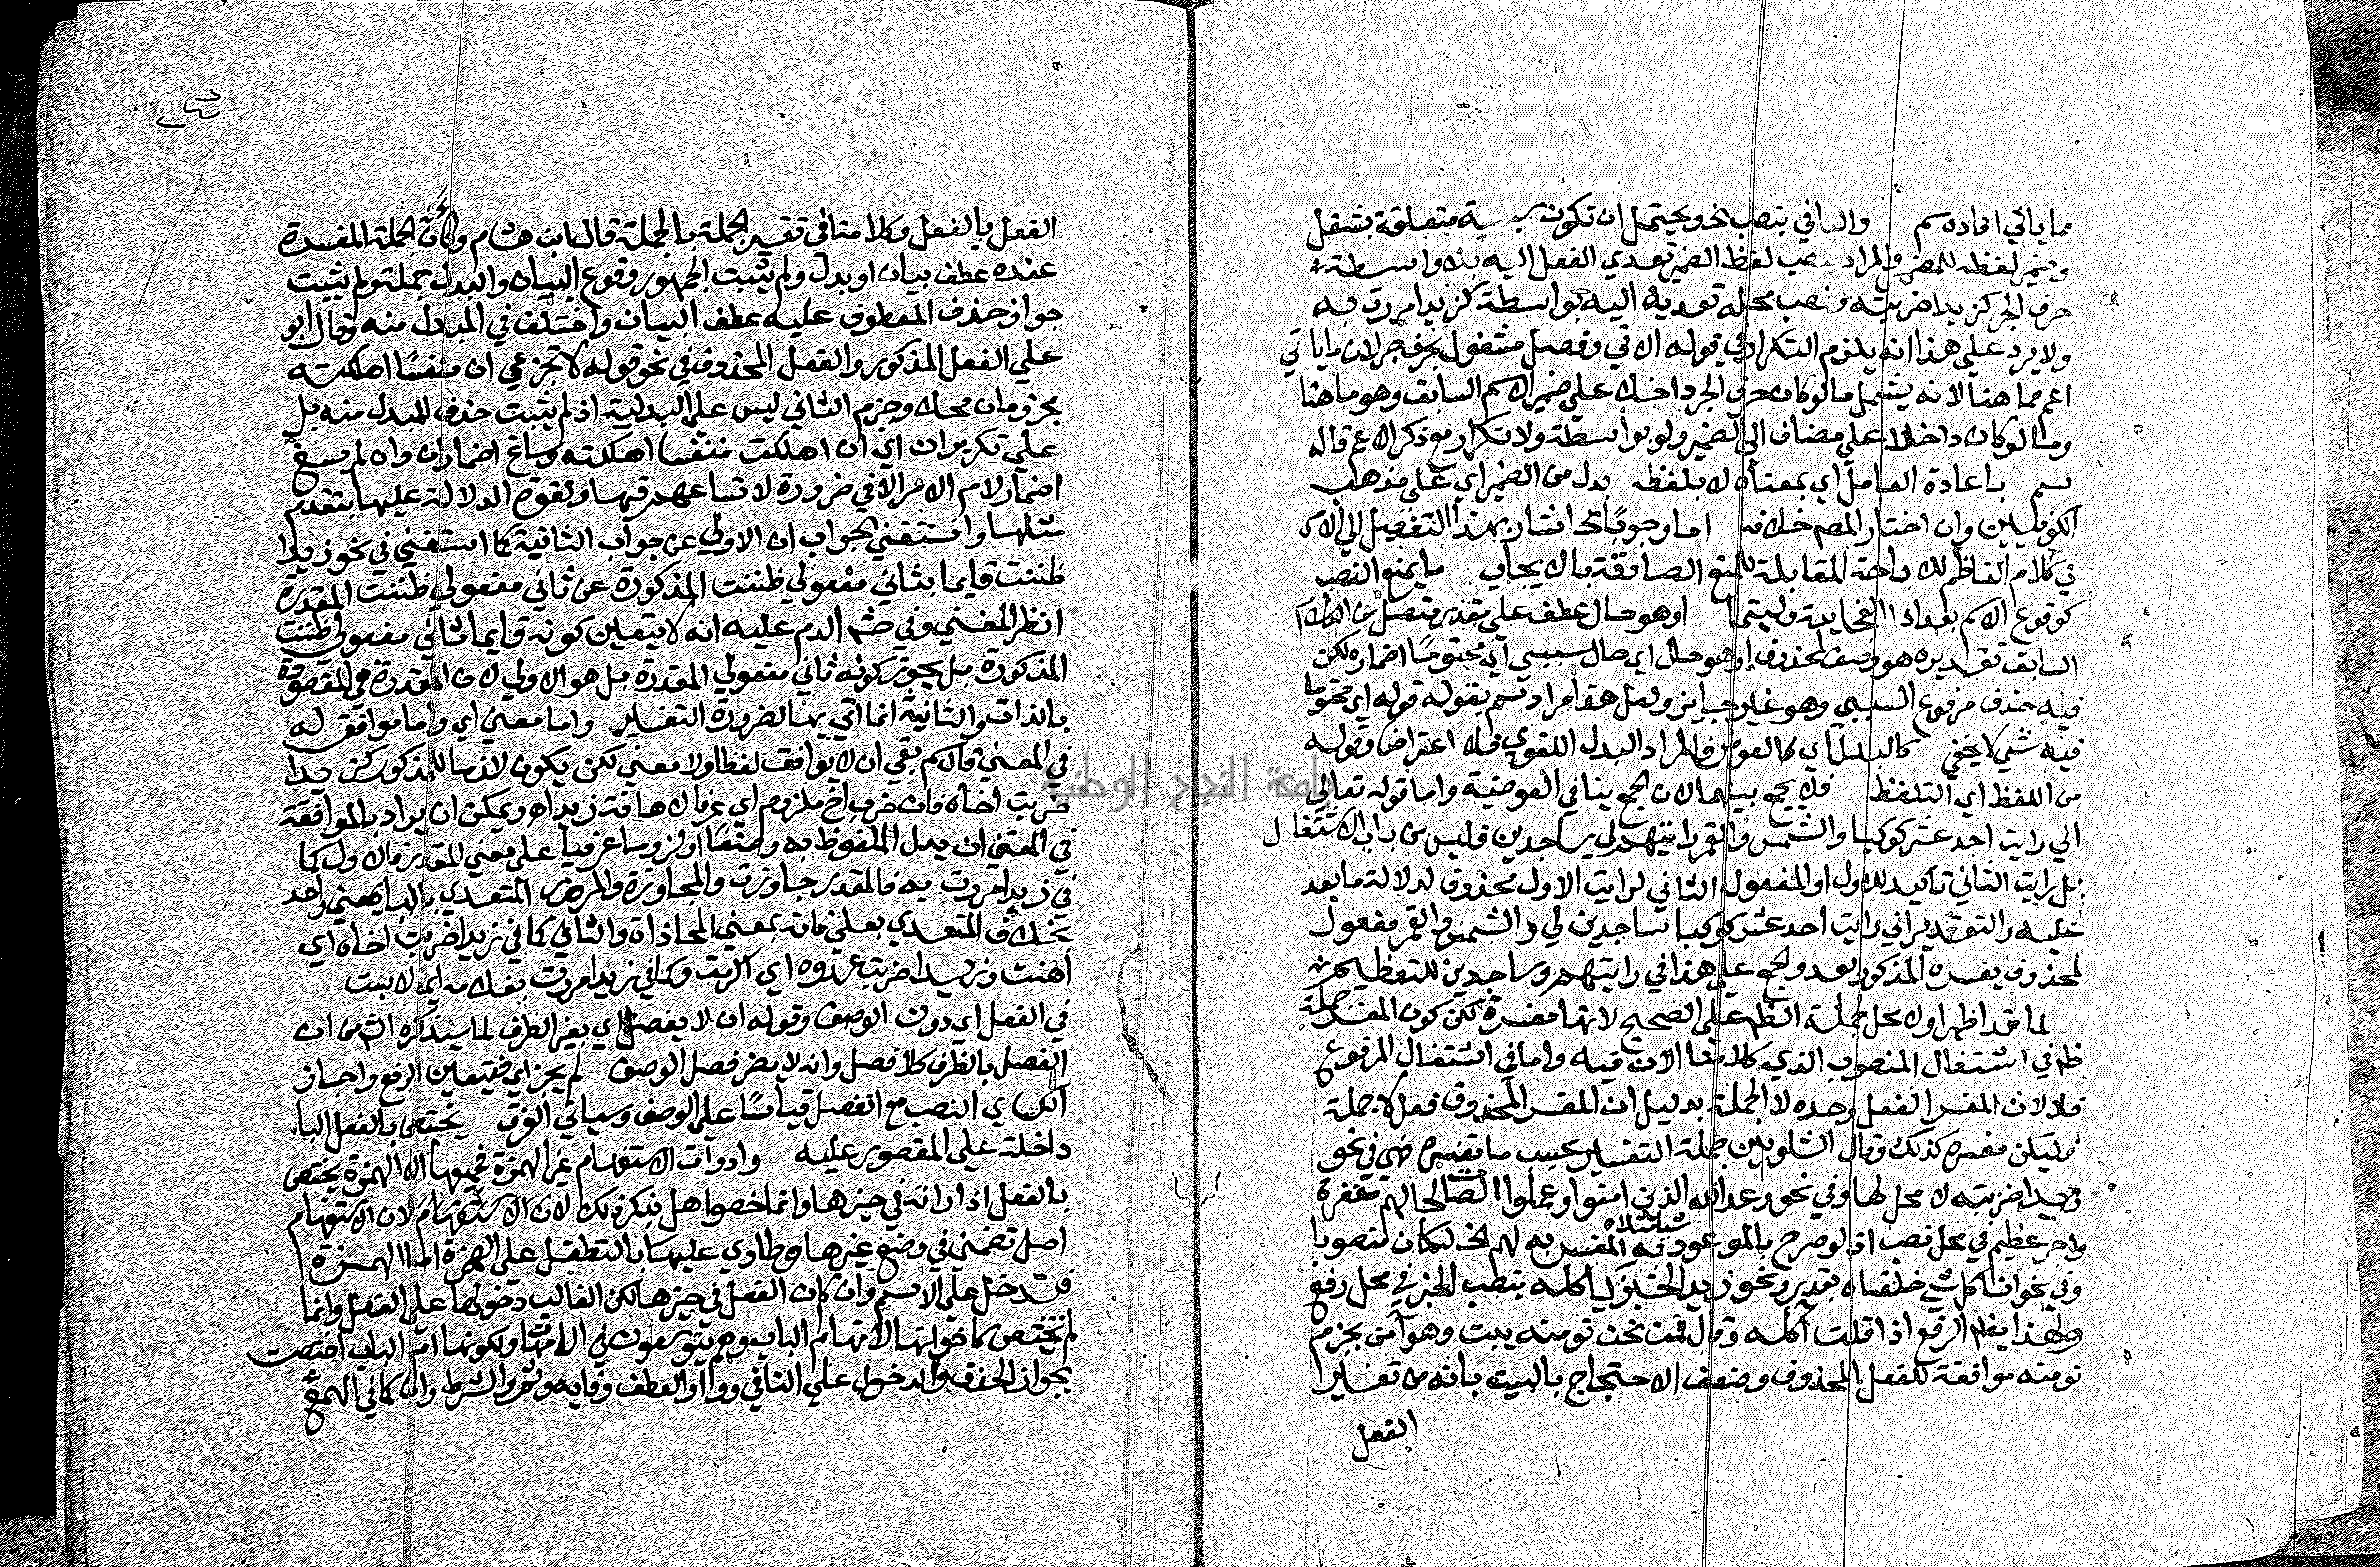 ما ياتي افاده سم والبا في بنصب نحو ويحتمل ان تكون سببية متعلقة بشغل
وضمير لفظه للمضمر والمراد بنصب لفظ الضمير تعدي الفعل اليه بلا واسطة
حرف الجر كزيدا ضربته وبنصب محله تعديه اليه بواسطة كزيدا مررت به
ولا يرد علي هذا انه يلزم التكرار في قوله الاتي وفصل مشغول بحرف جر لان ما ياتي
اعم مما هنا لانه يشمل ما لو كان حرف الجر داخلا علي ضمير الاسم السابق وهو ما هنا
وما لو كان داخلا علي مضاف الي الضمير ولو بواسطة ولا تكرار مع ذكر الاعم قاله
سم باعادة العامل اي بمعناه لا بلفظه بدل من الضمير اي علي مذهب
الكوفيين وان اختار المصم خلافه اما وجوبا الخ اشار بهذا التفصيل الي ان
في كلام الناظم للاباحة المقابلة للمنع الصادقة بالايجاب ما يمنع النصب
كوقوع الاسم بعد اذا الفجاية وليتما او هو حال عطف علي مقدر متصل من الكلام
السابق تقديره هو وصف لمحذوف او هو حال اي حال سببي اي محتوما اضماره لكن
فيه حذف مرفوع السببي وهو غير جايز ولعل هذا مراد سم بقوله قوله اي محتوما
فيه شي لا يخفي كالبدل اي كالعوض فالمراد البدل اللغوي فلا اعتراض وقوله
من اللفظ اي التلفظ فلا يجمع بينهما لان الجمع ينافي العوضية واما قوله تعالي
اني رايت احد عشر كوكبا والشمس والقمر رايتهم لي ساجدين فليس من باب الاشتغال
بل رايت الثاني تاكيد للاول او المفعول الثاني لرايت الاول محذوف لدلالة ما بعد
عليه والتقدير اني رايت احد عشر كوكبا ساجدين لي والشمس والقمر مفعول
لمحذوف يفسره المذكور بعد والجمع علي هذا في رايتهم وساجدين للتعظيم
لما قد اظهرا ولا محل لجملة الظهر علي الصحيح لانها مفسرة لكن كون المفسر جملة
ظم في اشتغال المنصوب الذي كلامنا الان فيه واما في اشتغال المرفوع
فلا لان المفسر الفعل وحده لا الجملة بدليل ان المفسر المحذوف فعل لا جملة
فليكن مفسره كذلك وقال الشلوبين جملة التفسير بحسب ما تفسره فهي في نحو
زيدا ضربته لا محل لها وفي نحو وعد الله الذين امنوا وعملوا الصالحات لهم مغفرة
واجر عظيم في محل نصب اذ لو صرح بالموعود به المفسر به لهم الخ لكان منصوبا
وفي نحو انا كل شي خلقناه بقدر ونحو زيد الخبز ياكله بنصب الخبز في محل رفع
ولهذا يظهر الرفع اذا قلت آكله وقال فمن نحن نومنه يبت وهو آمن بجزم
نومنه موافقة للفعل المحذوف وضعف الاحتجاج بالبيت بانه من تفسير
الفعل
الفعل بالفعل وكلامنا في تفسير الجملة بالجملة قال ابن هشام وكأن الجملة المفسرة
عنده عطف بيان او بدل ولم يثبت الجمهور وقوع البيان والبدل جملة ولم يثبت
جواز حذف المعطوف عليه عطف البيان واختلف في المبدل منه وقال ابو
علي الفعل المذكور والفعل المحذوف في نحو قوله لا تجزعي ان منفسا اهلكته
مجزومان محلا وجزم الثاني ليس علي البدلية اذ لم يثبت حذف المبدل منه بل
علي تكرير ان اي ان اهلكت منفسا اهلكته وساغ اضمار ان وان لم يسغ
اضمار لام الامر الا في ضرورة لاتساعهم فيها ولقوة الدلالة عليها بتقدم
مثلها واستغني بجواب ان الاولي عن جواب الثانية كما استغني في نحو زيدا
ظننت قايما بثاني مفعولي ظننت المذكورة عن ثاني مفعولي ظننت المقدرة
انظر المغني وفي حشه الدم عليه انه لا يتعين كونه قايما ثاني مفعولي ظننت
المذكورة بل يجوز كونه ثاني مفعولي المقدرة بل هو الاولي لان المقدرة هي المقصودة
بالذات والثانية انما اتي بها لضرورة التفسير واما معني اي واما موافق له
في المعني قال سم بقي ان لا يوافق لفظا ولا معني لكن يكون لازما للمذكور كزيدا
ضربت اخاه فان ضرب الاخ ملزوم اي عرفا لاهانة زيد اهـ ويمكن ان يراد بالموافقة
في المعني ان يدل الملفوظ به وضعا او لزوما عرفيا علي معني المقدر فالاول كما
في زيدا مررت به فالمقدر جاوزت والمجاوزة والمرور المتعدي بالبا بمعني واحد
بخلاف المتعدي بعلي فانه بمعني المحاذاة والثاني كما في زيدا ضربت اخاه اي
أهنت وزيدا ضربت عدوه اي اكرمت وكما في زيدا مررت بغلامه اي لابست
في الفعل اي دون الوصف وقوله ان لا يفصل اي بغير الظرف لما سيذكره الش من ان
الفصل بالظرف كلا فصل وانه لا يضر فصل الوصف لم يجز اي فيتعين الرفع واجاز
الكساي النصب مع الفصل قياسا علي الوصف وسياتي الفرق يختص بالفعل البا
داخلة علي المقصور عليه وادوات الاستفهام غير الهمزة فجميعها الا الهمزة يختص
بالفعل اذا راته في حيزها وانما خصوا هل بذكر ذلك لان الاستفهام لان الاستفهام
اصل تضمني في وضع غيرها وطاري عليها بالتطفل علي الهمزة اما الهمزة
فتدخل علي الاسم وان كان الفعل في حيزها لكن الغالب دخولها علي الفعل وانما
لم تختص كاخواتها لانها ام الباب وهم يتوسعون في الامهات ولكونها ام الباب اختصت
بجواز الحذف والدخول علي النافي وواو العطف وفايه وثم والشرط وان كما في الهمع
جامعة النجاح الوطنية